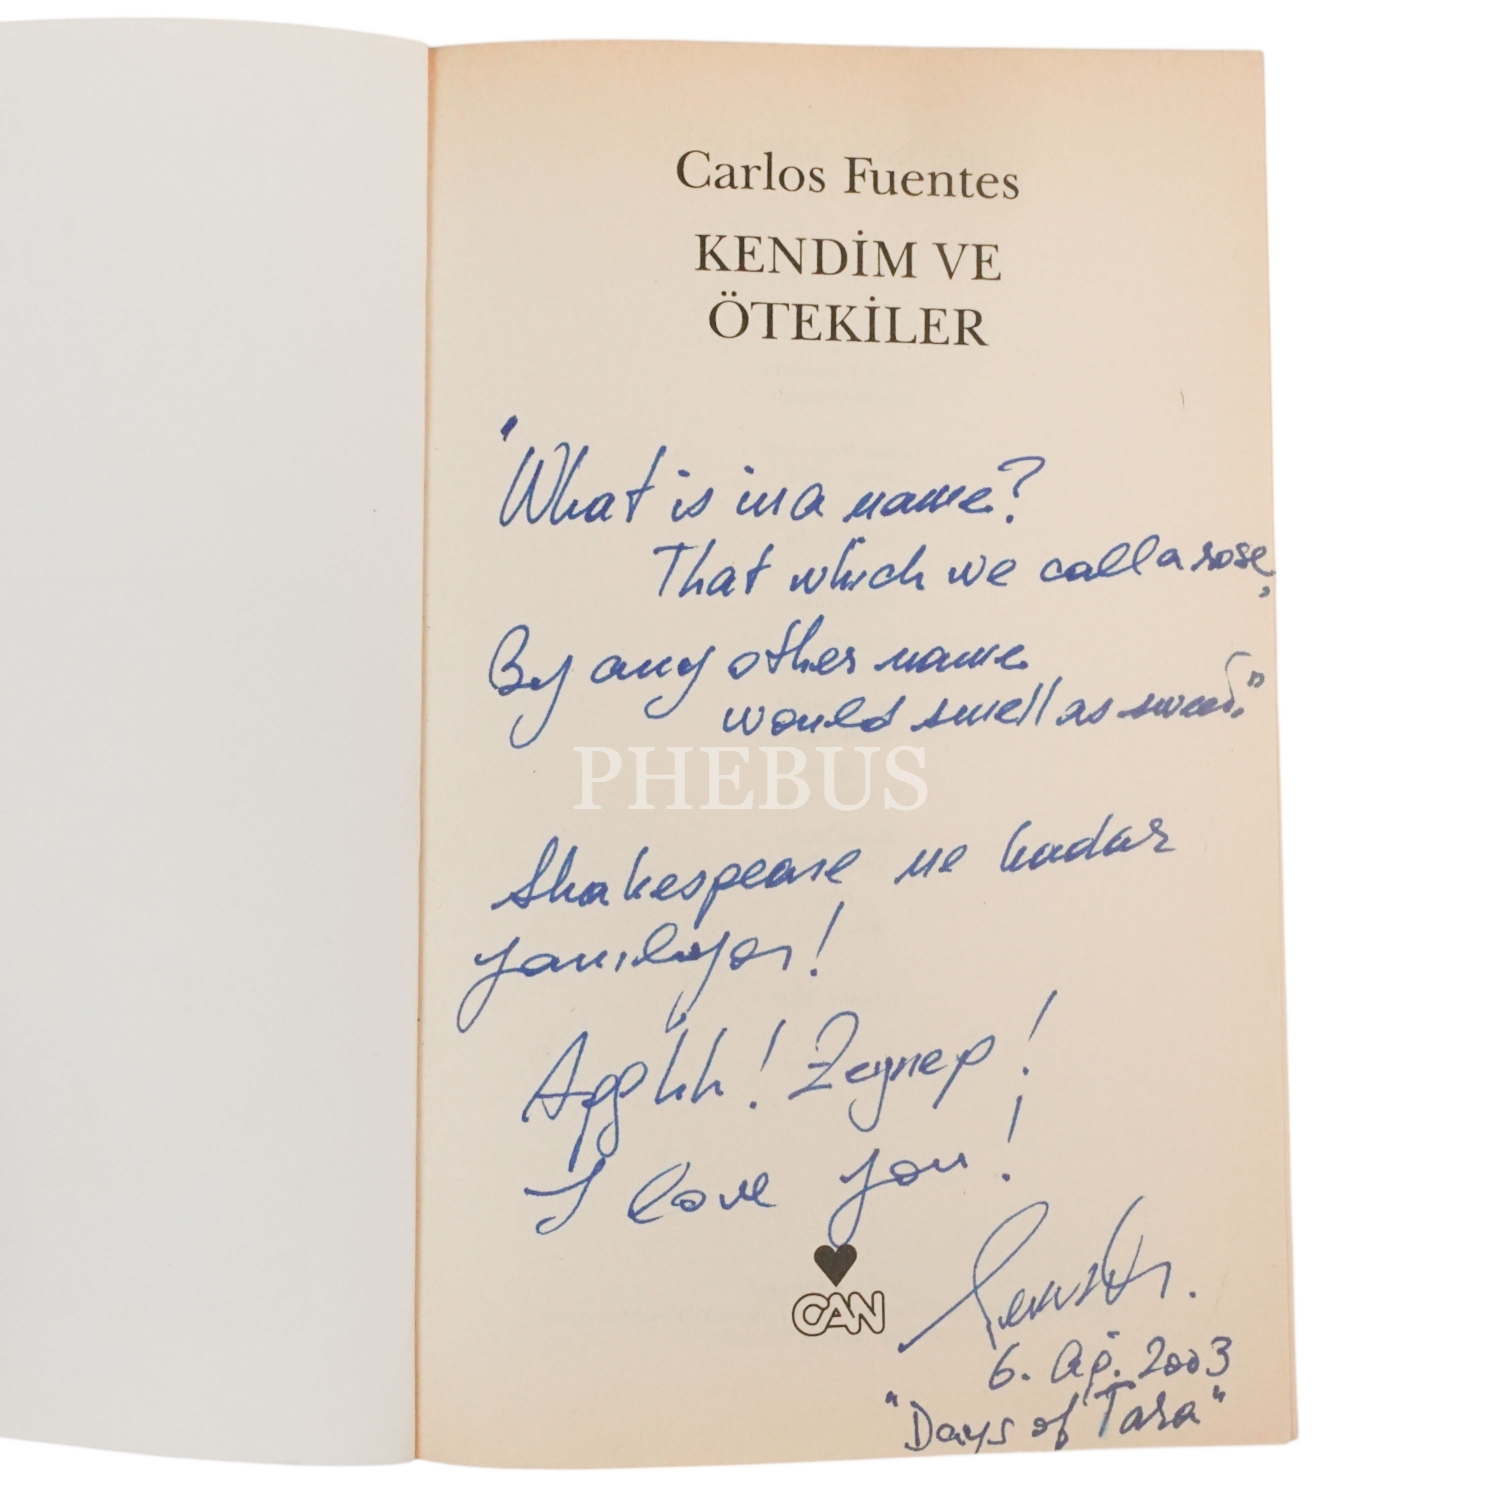 Carlos Fuentes
KENDİM VE
ÖTEKİLER
"What is in a name?
That which we call a rose,
By any other name
would smell as sweet."
PHEBUS
Shakespeare ne kadar
yanılıyor!
Agghh! Zeynep!
I love you!
CAN
6. Ap. 2003
"Days of Tara"